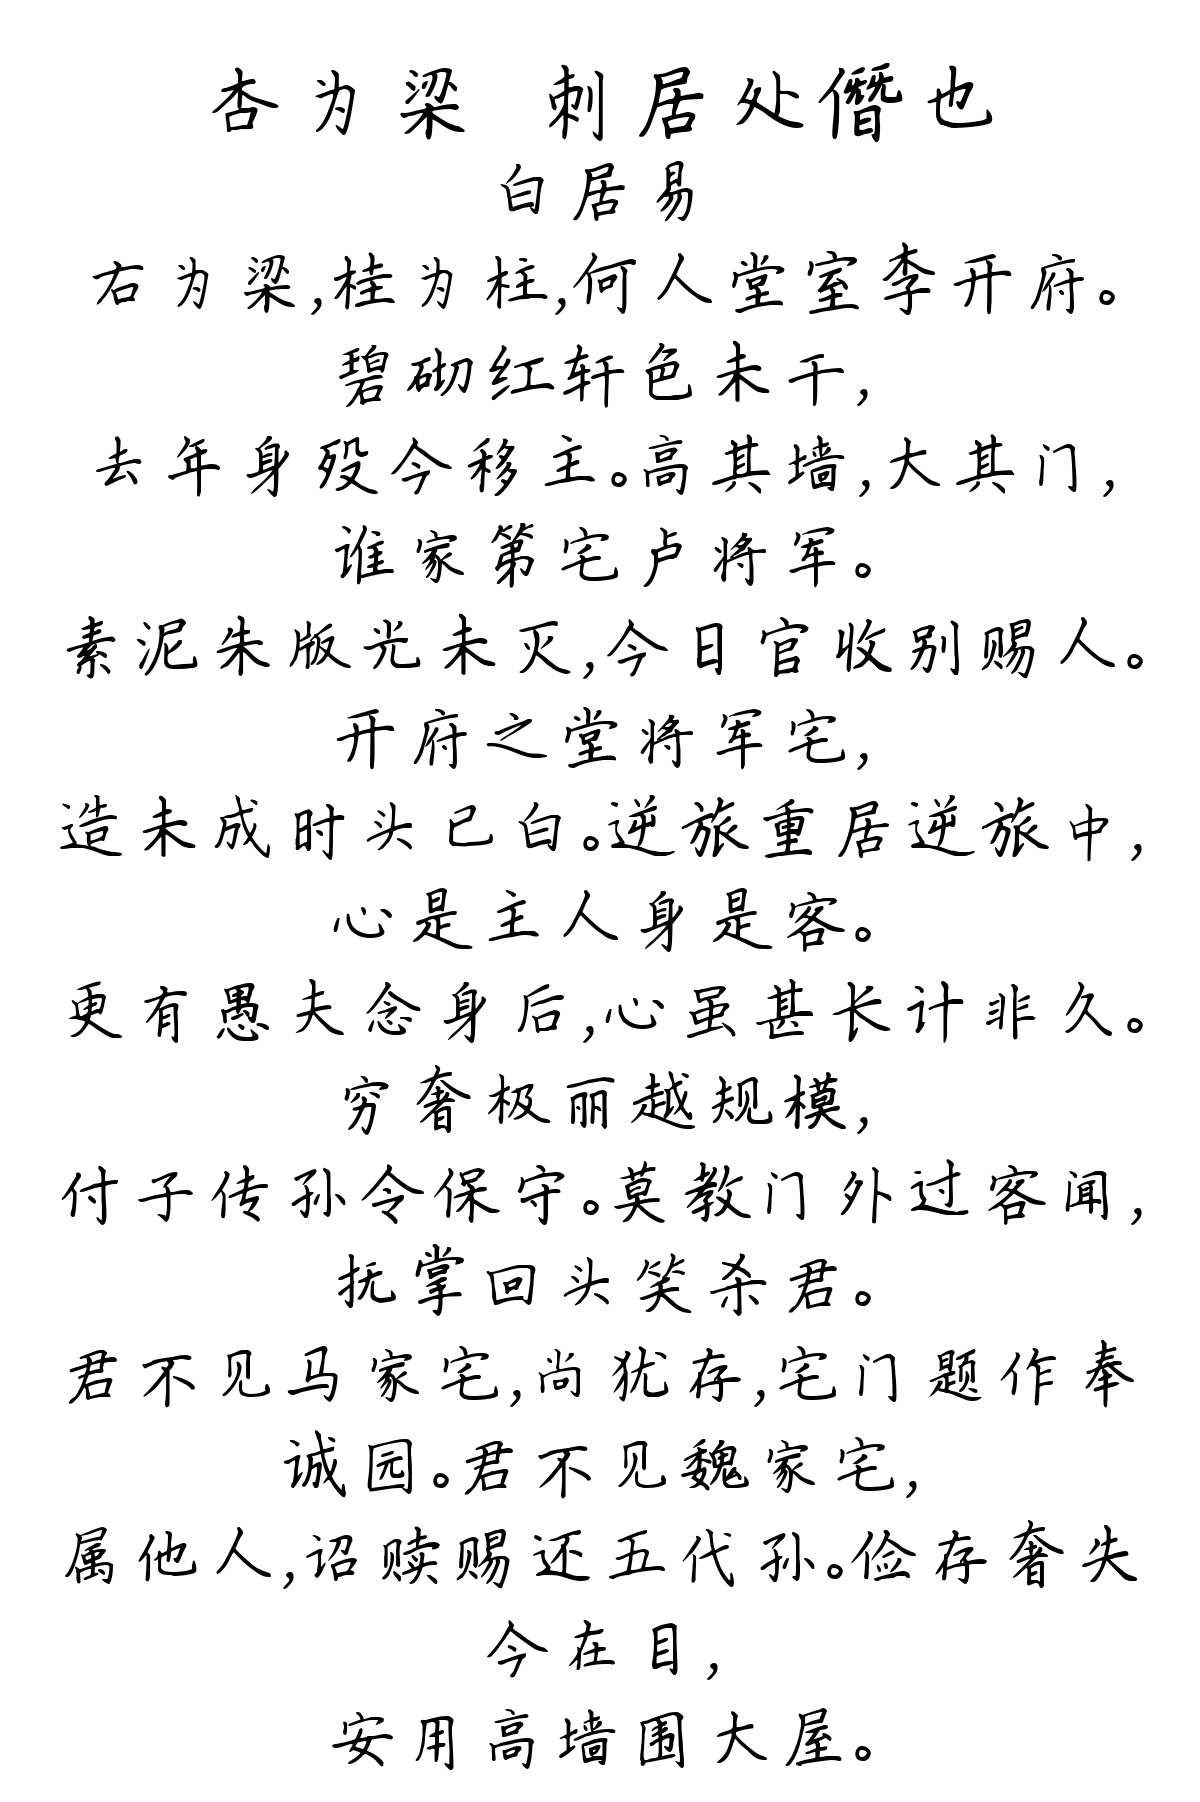 杏为梁 刺居处僭也
白居易
右为梁,桂为柱,何人堂室李开府。
碧砌红轩色未干,
去年身殁今移主。高其墙,大其门,
谁家第宅卢将军。
素泥朱版光未灭,今日官收别赐人。
开府之堂将军宅,
造未成时头已白。逆旅重居逆旅中,
心是主人身是客。
更有愚夫念身后,心虽甚长计非久。
穷奢极丽越规模,
付子传孙令保守。莫教门外过客闻,
抚掌回头笑杀君。
君不见马家宅,尚犹存,宅门题作奉
诚园。君不见魏家宅,
属他人,诏赎赐还五代孙。俭存奢失
今在目,
安用高墙围大屋。